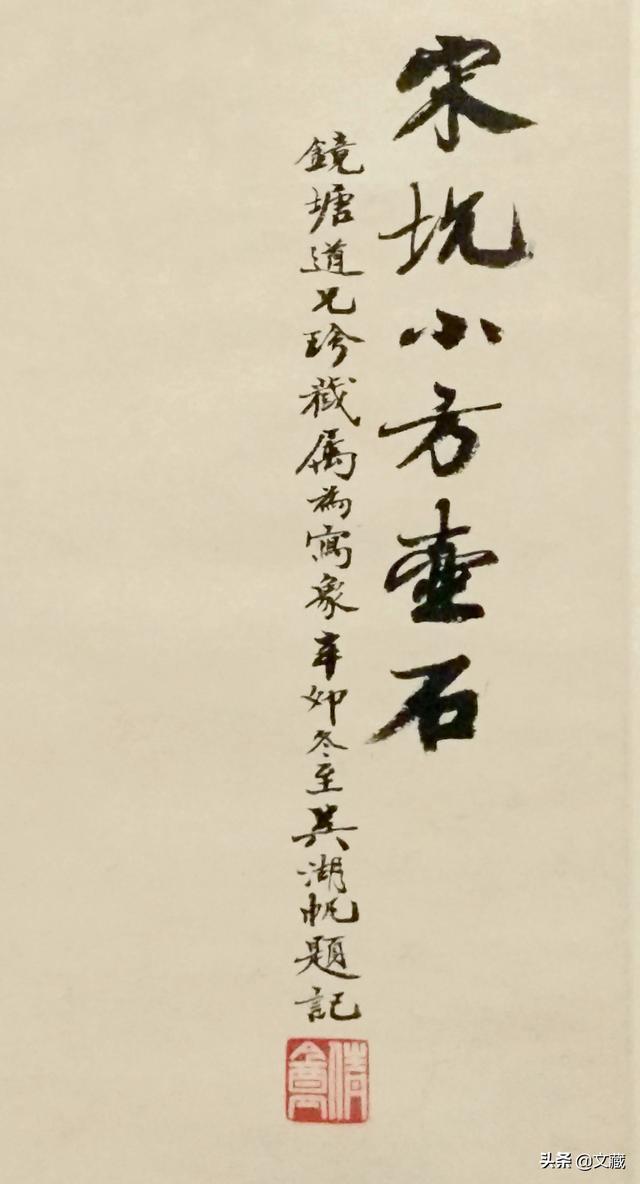 宋坑小方壶石
鏡塘道兄珍藏属為寫象辛卯冬至吴湖帆題記
倩盦
头条 @文藏